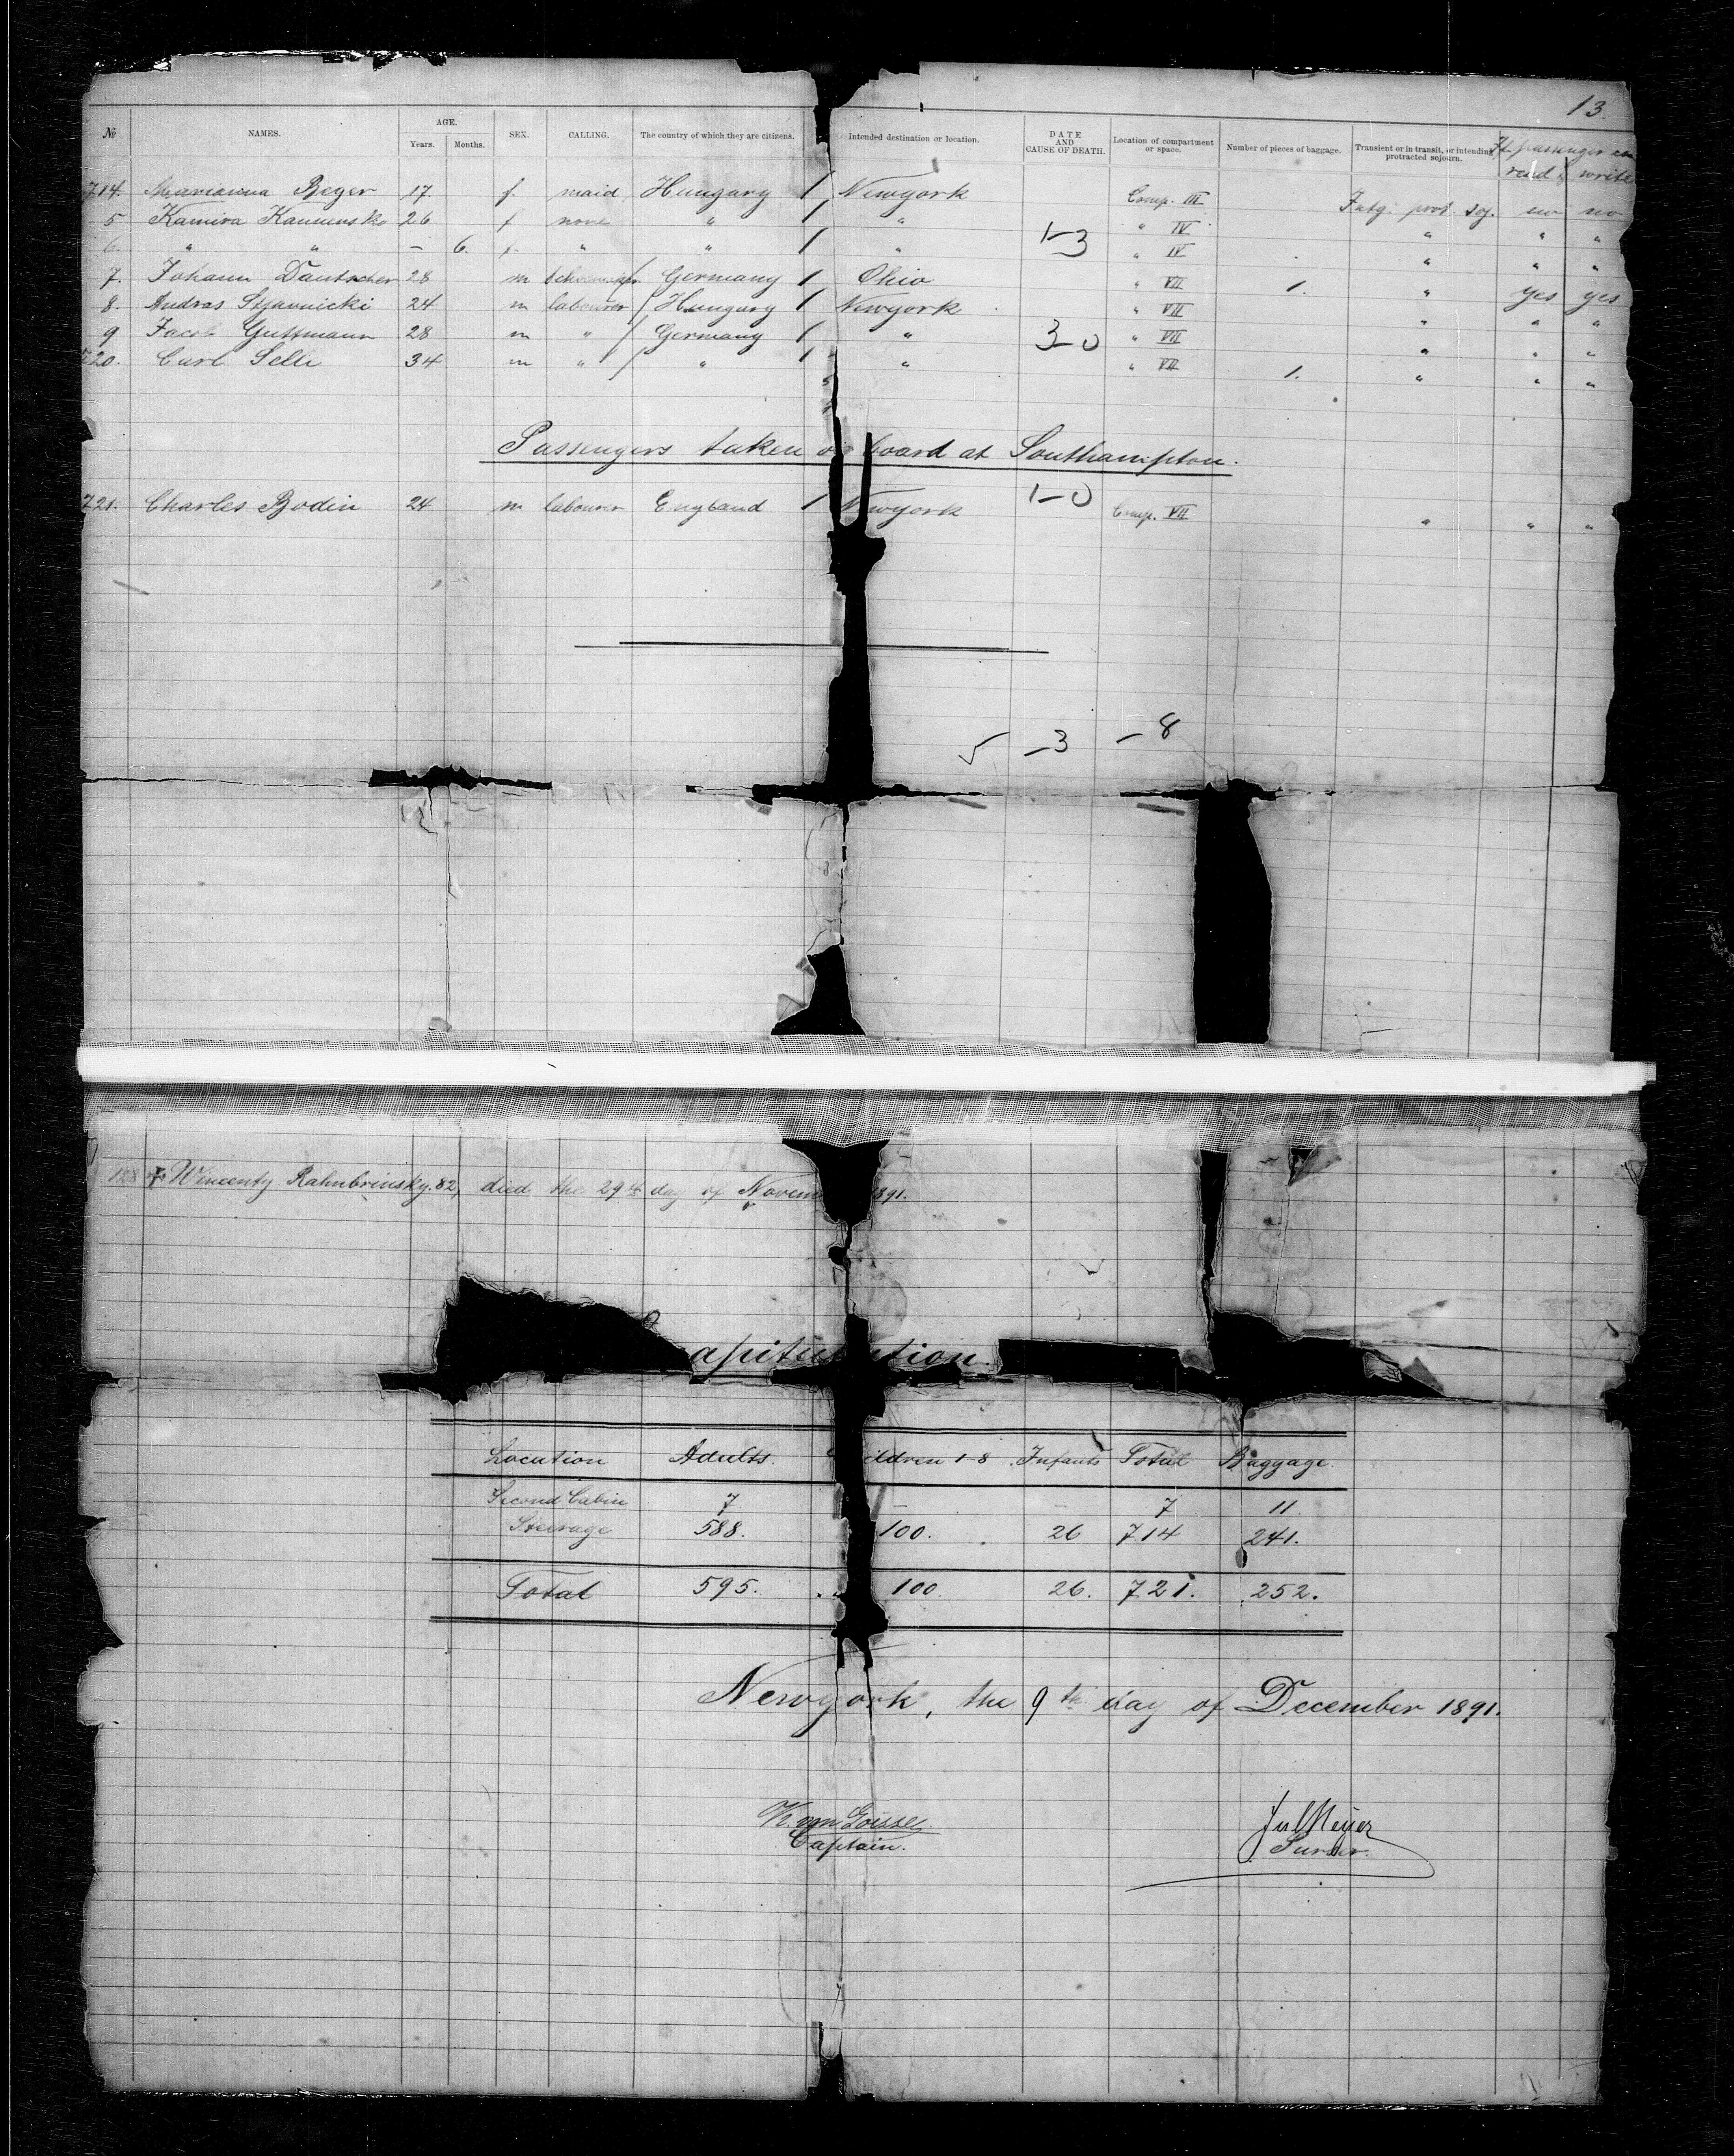 13.
№ NAMES. AGE. Years. Months. SEX. CALLING. The country of which they are citizens. Intended destination or location. DATE AND CAUSE OF DEATH. Location of compartment or space. Number of pieces of baggage. Transient or in transit, or intending protracted sojourn. If passenger can read & write
714. Marianna Beyer 17. f. maid Hungary / Newyork Comp. III prot. soj. no no
5 Kamira 26 f none " / " " IV " " "
6. " " – 6. f. " " / " 1–3 " IV " " "
7. Johann Dautscher 28 m / Germany / Ohio " VII 1. " yes yes
8. Andras 24 m labourer / Hungary / Newyork " VII " " "
9 Jacob Guttmann 28 m " / Germany / " 3–0 " VII " " "
720. Carl Selle 34 m " / " / " " VII 1. " " "
Passengers taken on board at Southampton.
721. Charles Bodin 24 m labourer England / Newyork 1–0 Comp. VII " " "
–3 –8
128 Wincenty Rahnbrinsky. 82, died the 29th day of Novem 1891.
apitu ation.
Location Adults. ildren 1-8 Infants Total Baggage.
Second Cabin 7 – – 7 11
Steerage 588. 100. 26 714 241.
Total 595. 100. 26. 721. 252.
Newyork, the 9th day of December 1891.
Captain.
Jul Meyer
Purser.